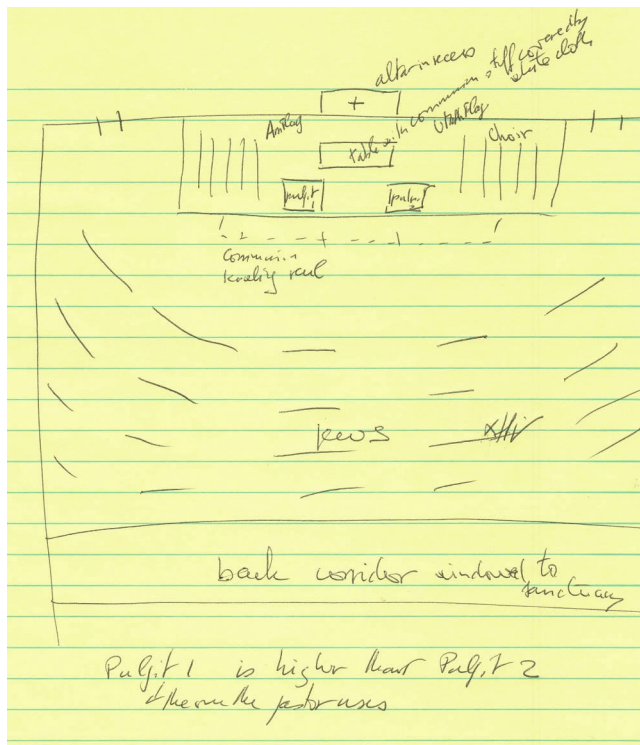 altar in recess
+
table with communion stuff covered by
white cloth
Am Flag
Utah Flag
Choir
pulpit
1
pulpit
2
Communion
kneeling rail
pews
back corridor windowed to
sanctuary
Pulpit 1 is higher than Pulpit 2
& the one the pastor uses